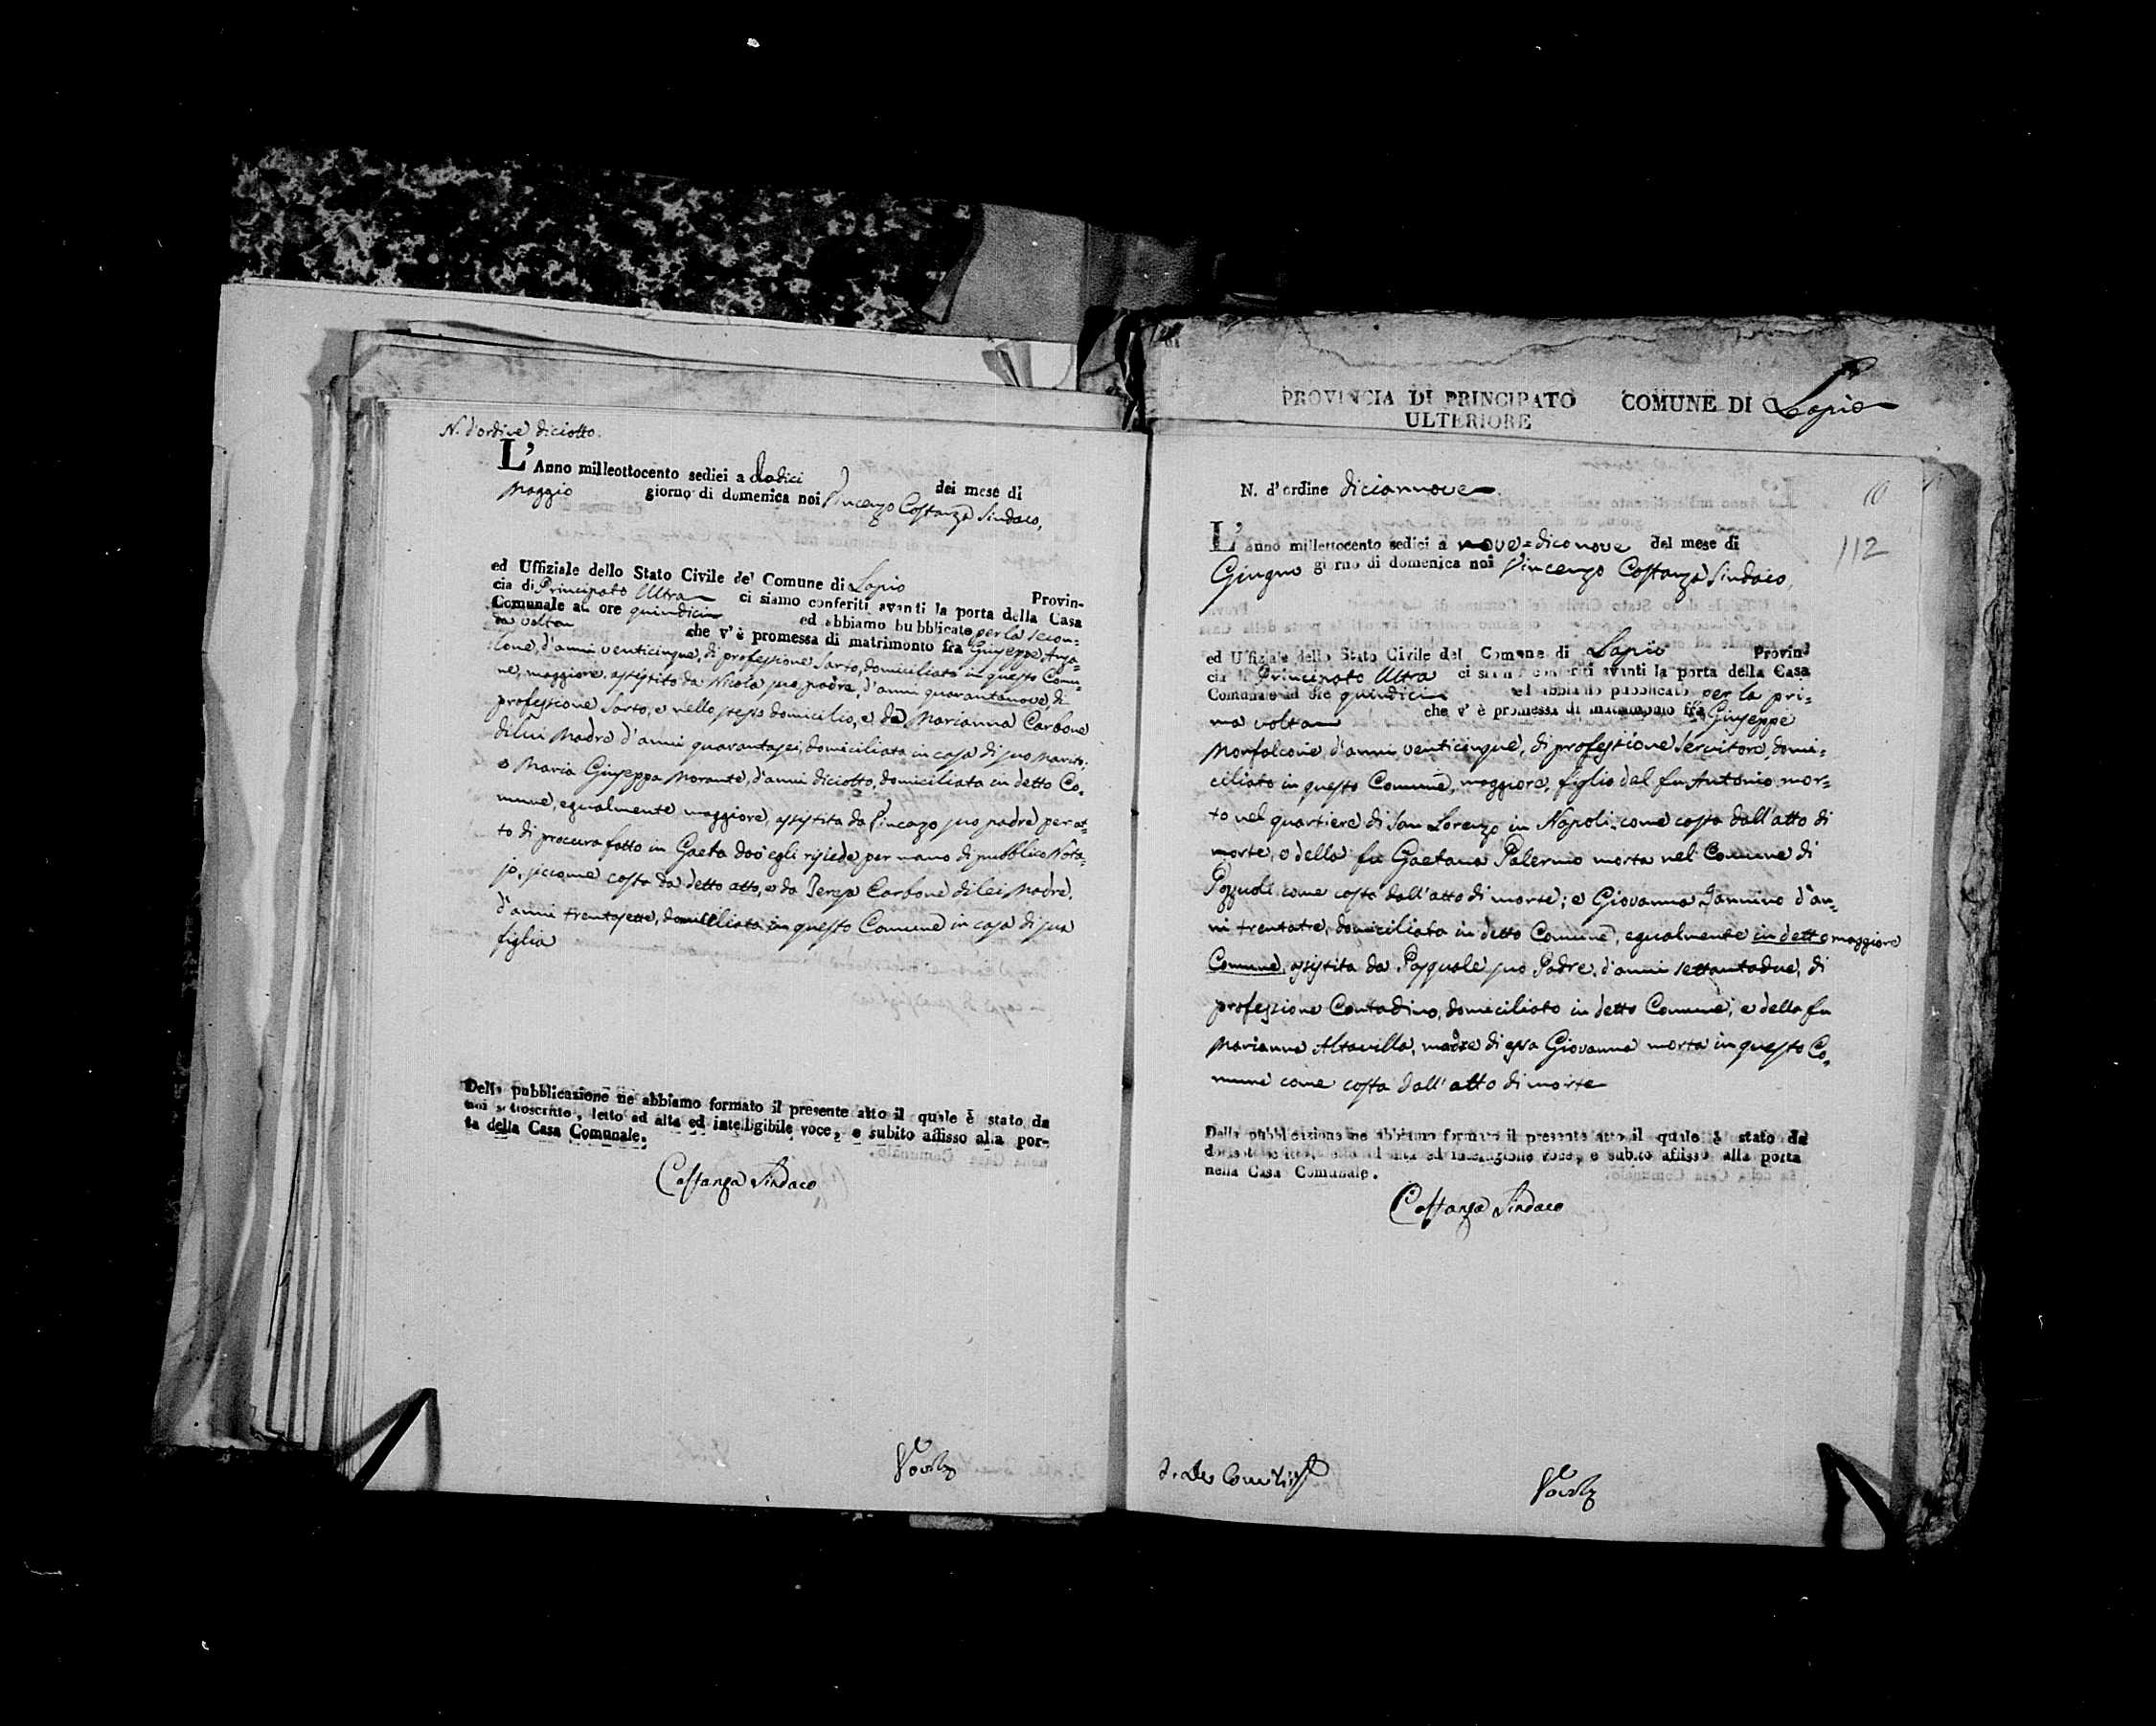 N. d'ordine diciotto.
L'Anno milleottocento sediei a dodici dei mese di
Maggio giorno di domenica noi Vincenzo Costanza Sindaco,
ed Uffiziale dello Stato Civile del Comune di Lapio Provin-
cia di Principato Ultra ci siamo conferiti avanti la porta della Casa
Comunale ad ore quindici ed abbiamo bubblicato per la secon-
da volta che v'è promessa di matrimonto fra Giuseppe Anza-
lone, d'anni venticinque, di professione Sarto, domiciliato in questo Comu-
ne, maggiore, assistito da Nicola suo padre, d'anni quarantanove, di
professione Sarto, e nello stesso domicilio, e da Marianna Carbone
di lui Madre d'anni quarantasei, domiciliata in casa di suo Marito;
e Maria Giuseppa Morante, d'anni diciotto, domiciliata in detto Co-
mune, egualmente maggiore, assistita da Vincenzo suo padre per at-
to di procura fatto in Gaeta dov'egli risiede per mano di pubblico Nota-
jo, siccome costa da detto atto, e da Teresa Carbone di lei Madre,
d'anni trentasette, domiciliata in questo Comune in casa di sua
figlia
Della pubblicazione ne abbiamo formato il presente atto il quale è stato da
noi sottoscritto, letto ad alta ed intelligibile voce, e subito affisso alla por-
ta della Casa Comunale.
Costanza Sindaco
PROVINCIA DI PRINCIPATO COMUNE DI Lapio
ULTERIORE
N. d'ordine diciannove
112
L'anno millettocento sedici a nove = diconove del mese di
Giugno giorno di domenica noi Vincenzo Costanza Sindaco,
ed Uffiziale dello Stato Civile del Comune di Lapio Provin-
cia di Principato Ultra ci siamo conferiti avanti la porta della Casa
Comunale ad ore quindici ed abbiamo pubblicato per la pri-
ma volta che v'è promessa di matrimonio fra Giuseppe
Morfalcone, d'anni venticinque, di professione Servitore, domi-
ciliato in questo Comune, maggiore, figlio del fu Antonio mor-
to nel quartiere di San Lorenzo in Napoli, come costa dall'atto di
morte, e della fu Gaetana Palermo morta nel Comune di
Pozzuoli come costa dall'atto di morte; e Giovanna Iannino d'an-
ni trentatre, domiciliata in detto Comune, egualmente in detto maggiore
Comune, assistita da Pasquale suo Padre, d'anni settantadue, di
professione Contadino, domiciliato in detto Comune, e della fu
Marianna Altavilla, madre di essa Giovanna morta in questo Co-
mune come costa dall'atto di morte
Della pubblicazione ne abbiamo formato il presente atto il quale è stato da
voce, e subito affisso alla porta
nella Casa Comunale.
Costanza Sindaco